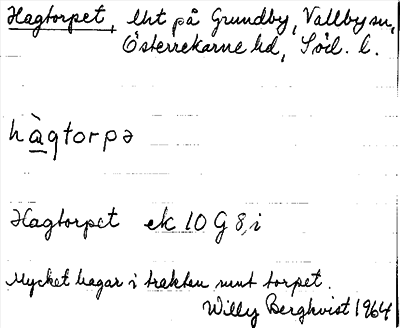 Hagtorpet, lht på Grundby, Vallby sn,
Österrekarne hd, Söd. l.
hàgtorpə
Hagtorpet ek 10 G 8, i
Mycket hagar i trakten runt torpet.
Willy Berghvist 1964